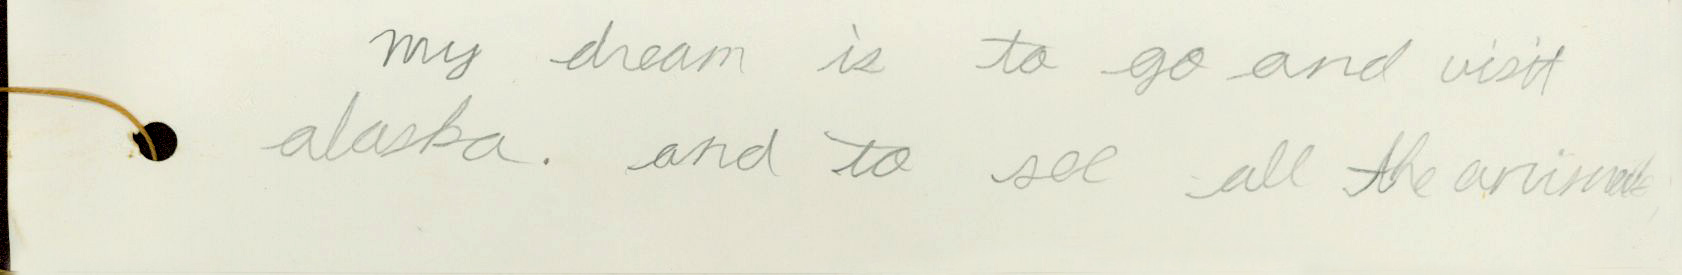 my dream is to go and visit
alaska. and to see all the animals